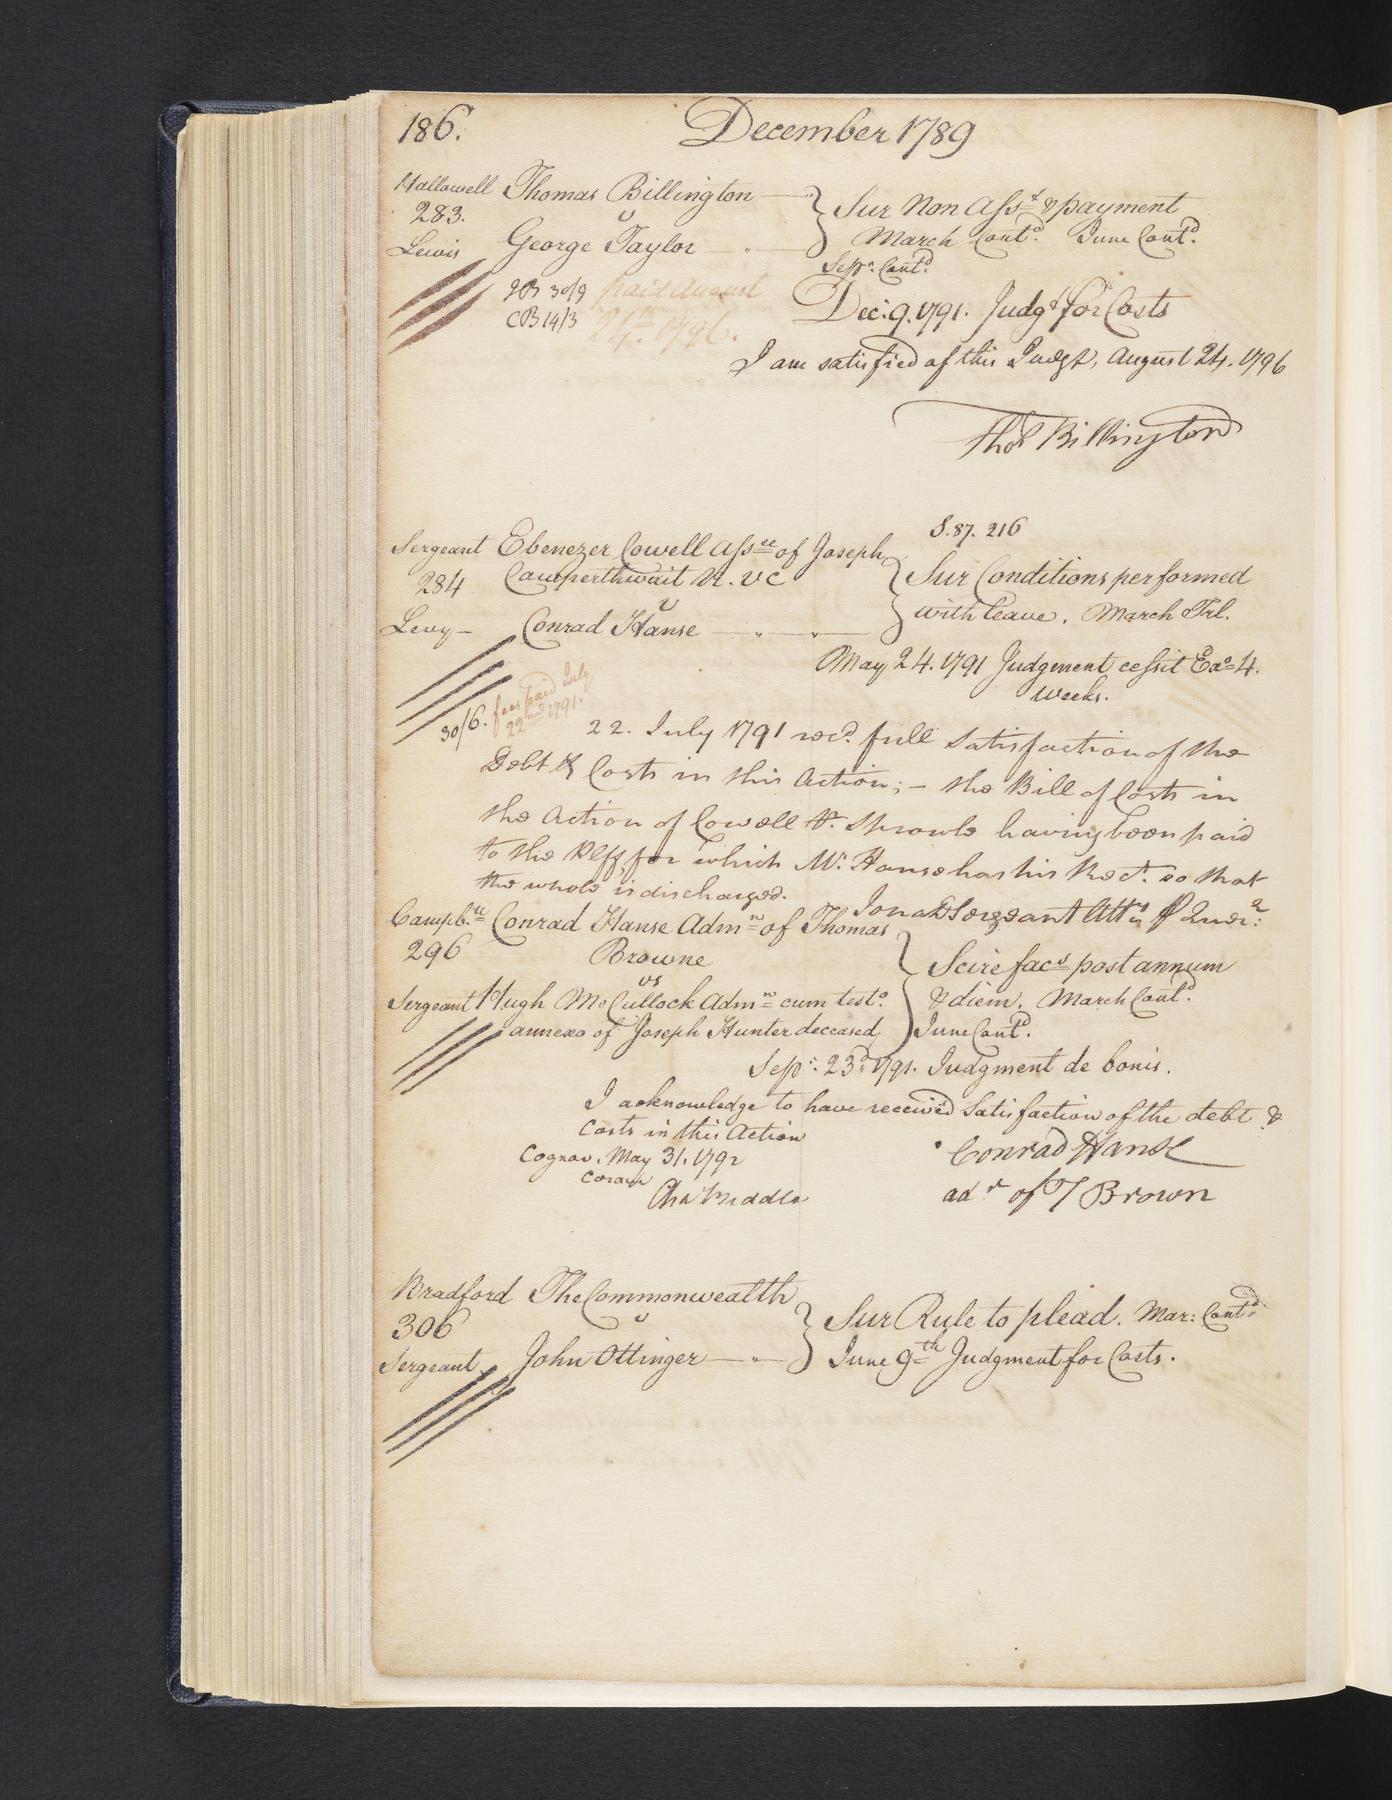 186. December 1789
Hallowell Thomas Billington
283. v
Lewis George Taylor
Sur Non Asst. & payment
March Contd. June Contd.
Sepr. Contd.
30/9 paid August
CB 14/3 24th. 1796.
Dec: 9. 1791. Judgt. for Costs
I am satisfied of this Judgt, August 24. 1796
Thos Billington
S. 87. 216
Sergeant Ebenezer Cowell Assee of Joseph
284 Cowperthwait
v
Levy Conrad Hanse
Sur Conditions performed
with leave. March Trl.
May 24. 1791 Judgment cessit Exo 4.
weeks.
30/6. fees paid July
22nd 1791.
22. July 1791 recd. full satisfaction of the
Debt & Costs in this Action; – the Bill of Costs in
the Action of Cowell v. Sprowls having been paid
to the Plff, for which Mr. Hanse has his Rect. so that
the whole is discharged.
Jonat D Sergeant Atty p Quer:
Campble Conrad Hanse Admr of Thomas
296 Browne
vs
Sergeant Hugh McCullock Admr cum testo.
annexo of Joseph Hunter deceased
Scire facs post annum
& diem. March Contd.
June Contd.
Sepr. 23d. 1791. Judgment de bonis.
I acknowledge to have received Satisfaction of the debt &
Costs in this Action
Cognov. May 31. 1792
coram
Cha Biddle
Conrad Hanse
adr of T Brown
Bradford The Commonwealth
306 v
Sergeant John Ottinger
Sur Rule to plead. Mar: Contd.
June 9th Judgment for Costs.